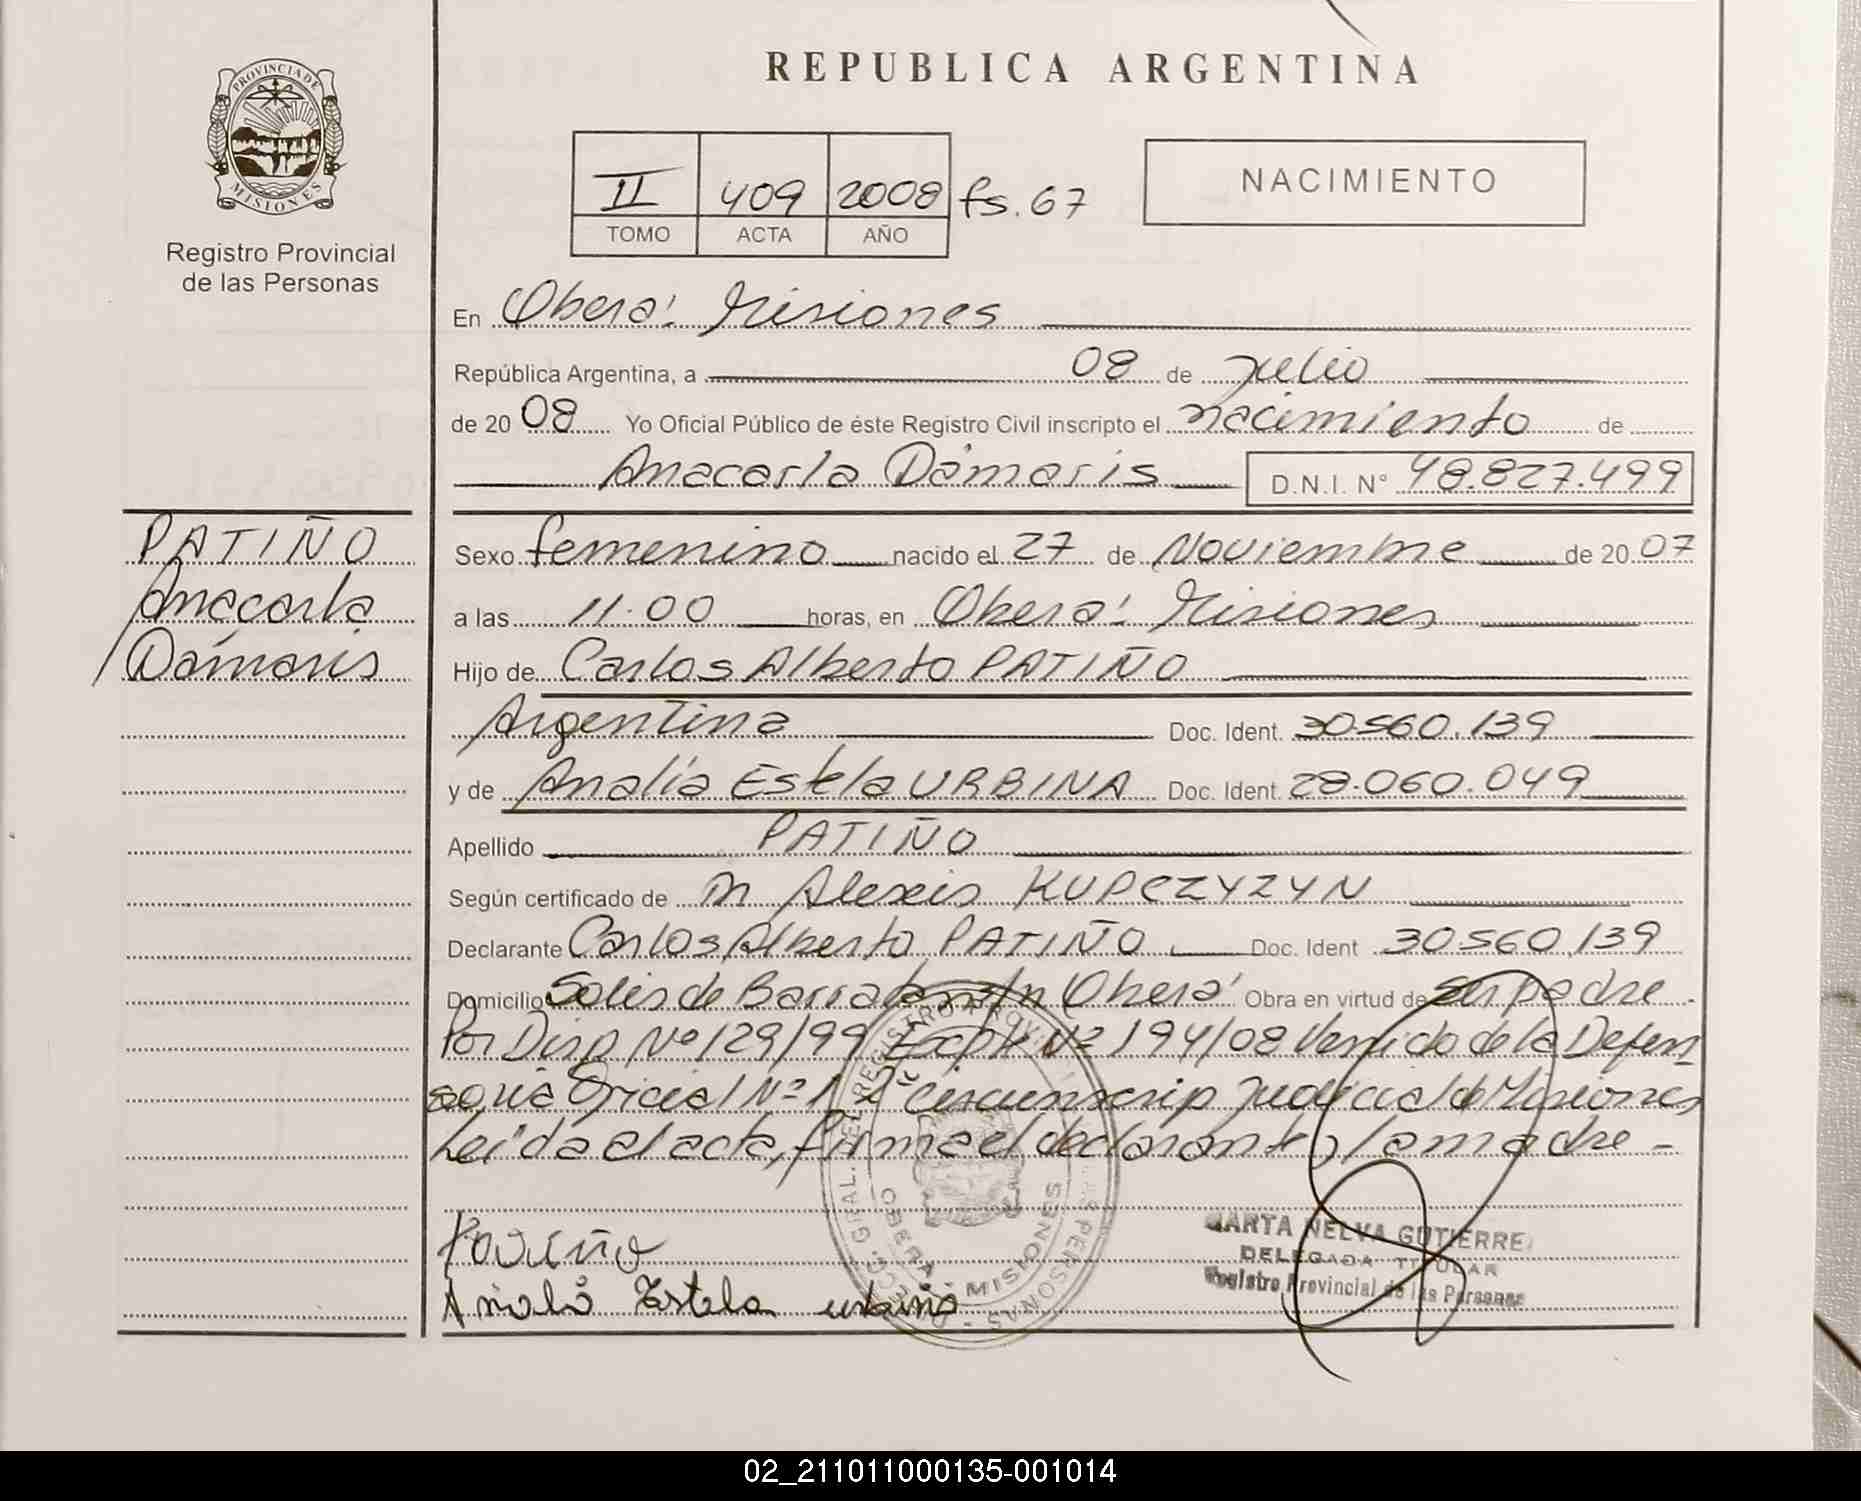 REPUBLICA ARGENTINA
PROVINCIA DE
MISIONES
Registro Provincial
de las Personas
II 409 2008 fs. 67
TOMO ACTA AÑO
NACIMIENTO
En Oberá: Misiones
República Argentina, a 08 de julio
de 2008 Yo Oficial Público de éste Registro Civil inscripto el nacimiento de
Anacarla Dámaris D.N.I. N° 48.827.499
PATIÑO
Anacarla
Dámaris
Sexo femenino nacido el 27 de Noviembre de 2007
a las 11.00 horas, en Oberá: Misiones
Hijo de Carlos Alberto PATIÑO
Argentina Doc. Ident. 30560.139
y de Analía Estela URBINA Doc. Ident. 28.060.049
Apellido PATIÑO
Según certificado de Dr Alexis KUPCZYZYN
Declarante Carlos Alberto PATIÑO Doc. Ident 30560,139
Domicilio Solis de Barra s/n Oberá Obra en virtud de ser padre
Por Disp Nº 129/99 Expte Nº 194/08 Venido de la Defen
soria Oficial Nº 1 2ª circunscrip Judicial de Misiones
Leída el acta, firma el declarante y la madre -
Patiño
Estela urbina
MARTA NELVA GUTIERRE
DELEGADA TITULAR
Registro Provincial de las Personas
OBERA - MISIONES
02_211011000135-001014